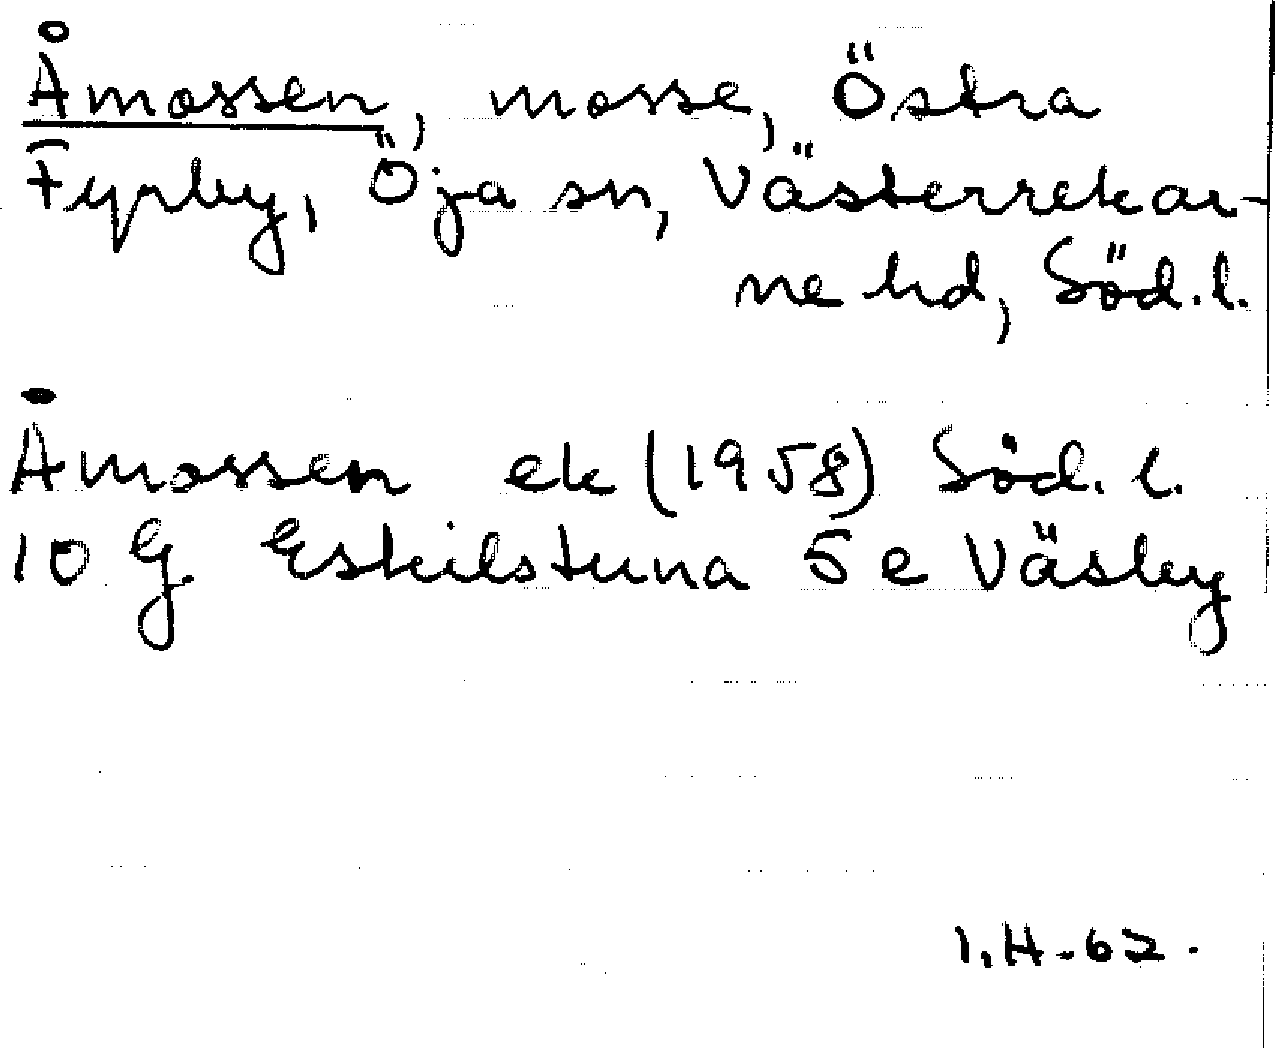 Åmossen, mosse, Östra
Fyrby, Öja sn, Västerrekar-
ne hd, Söd.l.
Åmossen ek (1958) Söd.l.
10 G Eskilstuna 5 e Väsby
I.H-62.